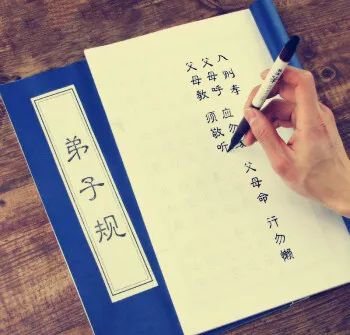 入则孝
父母呼 应勿 父母命 行勿懒
父母教 须敬听
弟子规